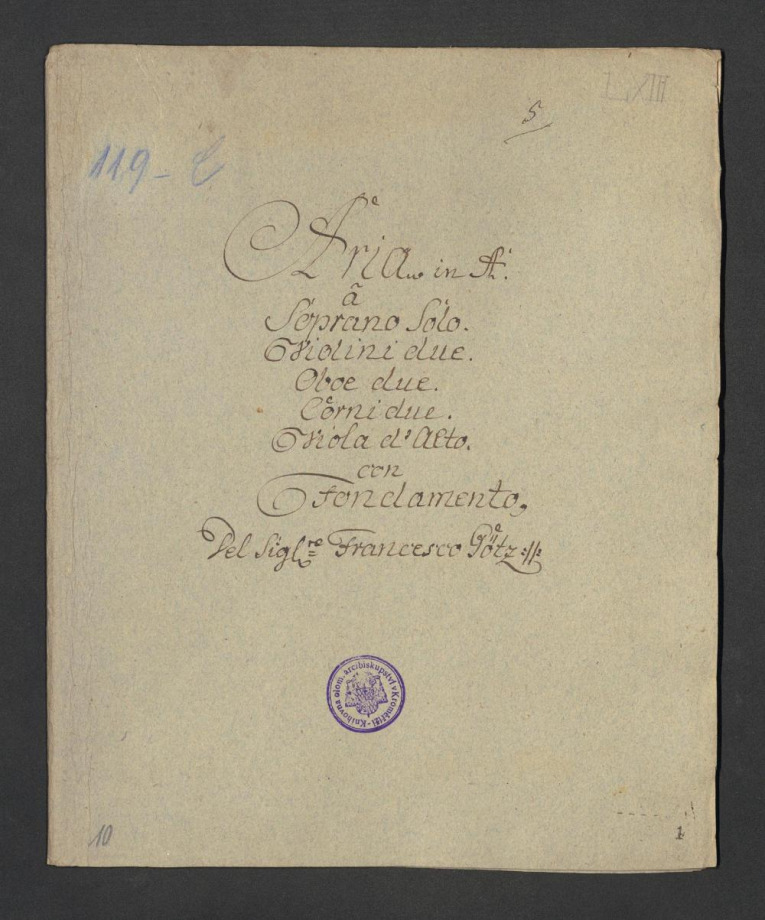 LXIII
5
119 - C
Aria in A:
â
Soprano Solo.
Violini due.
Oboe due.
Corni due.
Viola d'Alto.
con
Fondamento,
Del Sigl:re Francesco Götz://:
Knihovna olom. arcibiskupství v Kroměříži
10
1